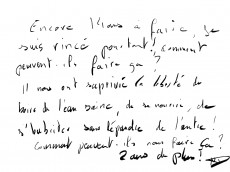 Encore 14 ans à faire, je
suis rincé pourtant! comment
peuvent-ils faire ça?
Il nous ont supprimé la liberté de
boire de l'eau saine, de se nourrir, de
s'habiller sans dépendre de l'autre!
Comment peuvent-ils nous faire ça?
2 ans de plus!